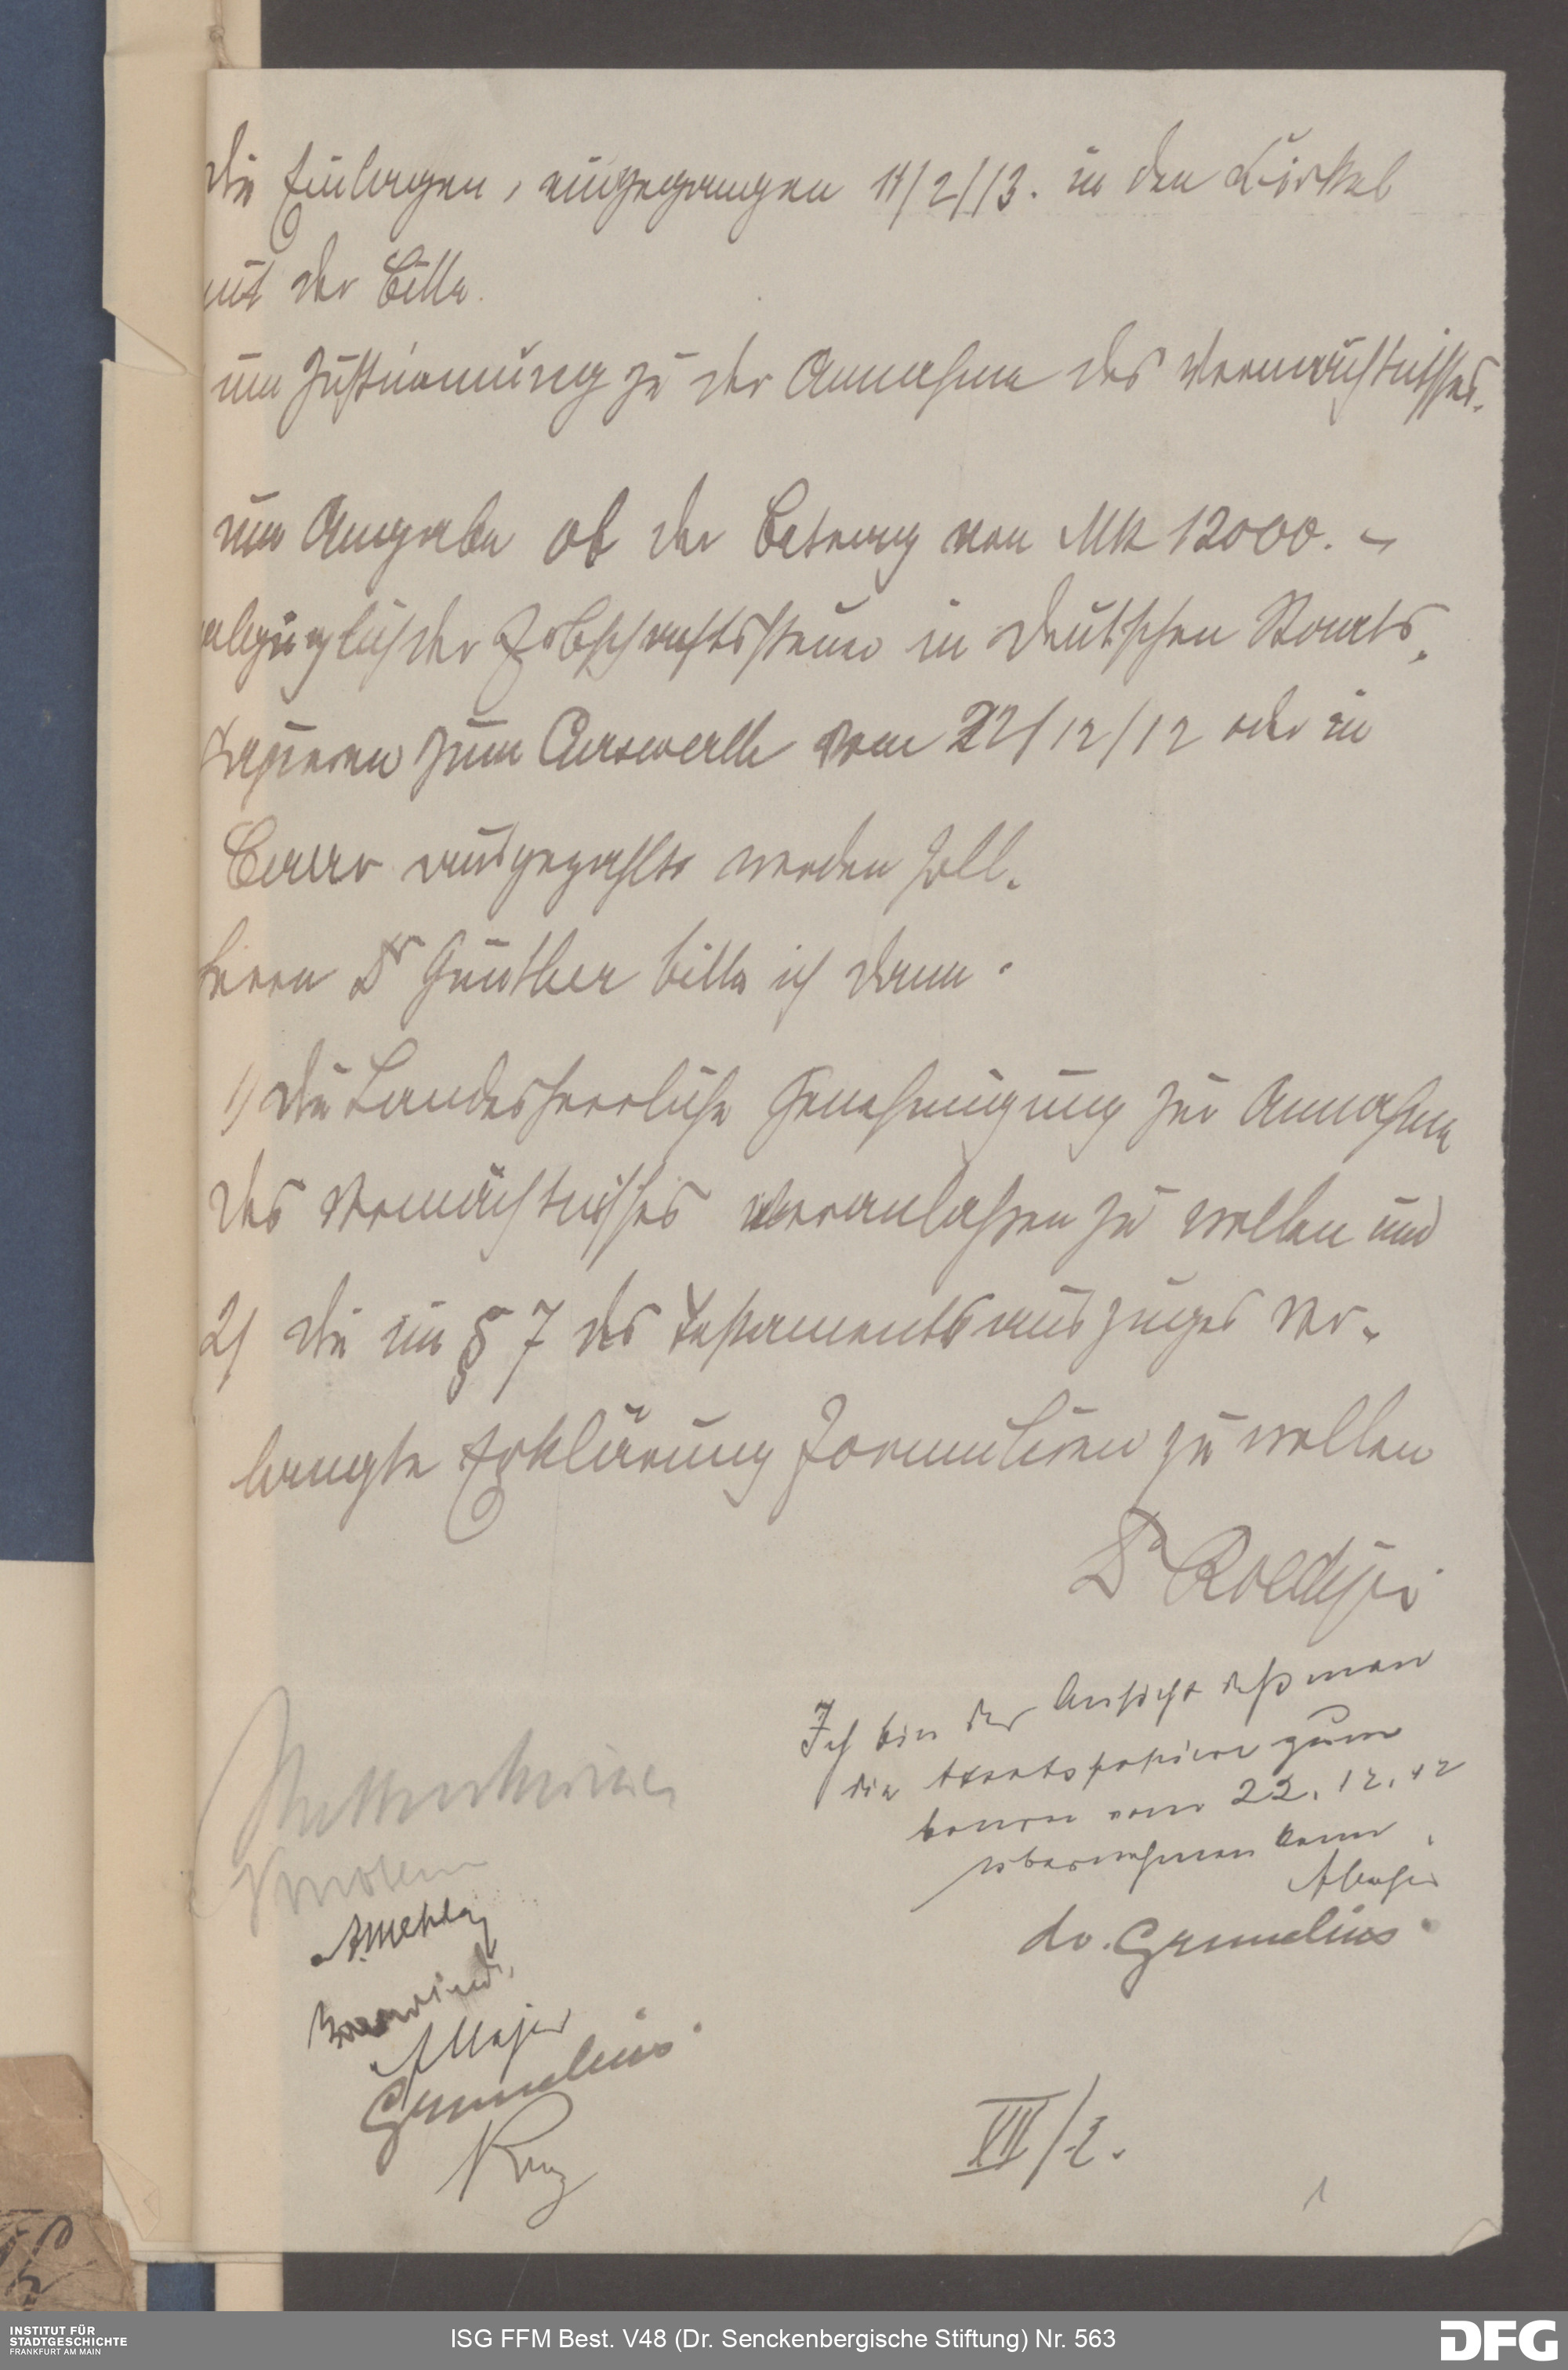 die Einlagen, eingegangen 11/2/13. in den Cirkel
mit der Bitte.
um Zustimmung zu der Annahme des Vermächtnisses.
um Angabe ob der Betrag von Mk 12000.–
abzüglich der Erbschaftssteuer in deutschen Staats-
papieren zum Curswerthe vom 22/12/12 oder in
Baar ausgezahlt werden soll.
Herrn Dr Günther bitte ich dann.
1) die Landesherrliche Genehmigung zur Annahme
des Vermächtnisses veranlassen zu wollen und
2) die im § 7 des Testamentsauszuges ver-
langte Erklärung formuliren zu wollen
Dr Roediger
Ich bin der Ansicht daß man
die Staatspapiere zum
Course vom 22. 12. 12
übernehmen kann.
A Mayer
do. Grunelius
A Mayer
Grunelius
VII/2.
INSTITUT FÜR
STADTGESCHICHTE
FRANKFURT AM MAIN
ISG FFM Best. V48 (Dr. Senckenbergische Stiftung) Nr. 563
DFG